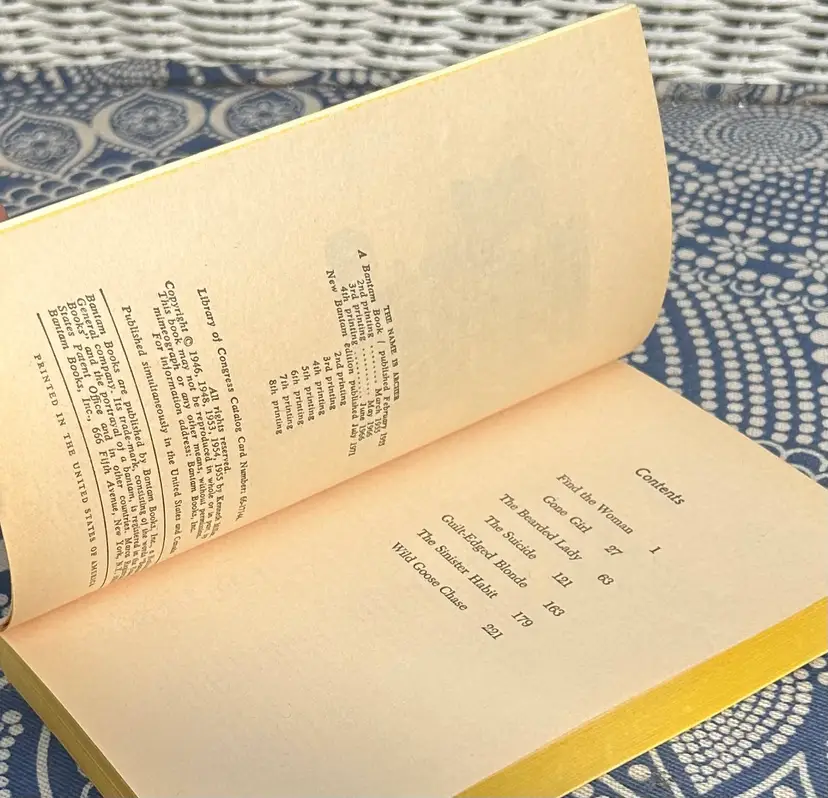 THE NAME IS ARCHER
A Bantam Book / published February 1955
2nd printing ......... March 1955
3rd printing ......... May 1966
4th printing ......... June 1966
New Bantam edition published July 1971
2nd printing
3rd printing
4th printing
5th printing
6th printing
7th printing
8th printing
Library of Congress Catalog Card Number:
All rights reserved.
Copyright © 1946, 1948, 1953, 1954, 1955 by Kenneth
This book may not be reproduced in whole or in part, by
mimeograph or any other means, without permission.
For information address: Bantam Books, Inc.
Published simultaneously in the United States and
Bantam Books are published by Bantam Books, Inc., a
General company. Its trade-mark, consisting of the words
Books" and the portrayal of a bantam, is registered in the
States Patent Office and in other countries. Marca
Bantam Books, Inc., 666 Fifth Avenue, New York, N.Y.
PRINTED IN THE UNITED STATES OF AMERICA
Contents
Find the Woman 1
Gone Girl 27
The Bearded Lady 63
The Suicide 121
Guilt-Edged Blonde 163
The Sinister Habit 179
Wild Goose Chase 221